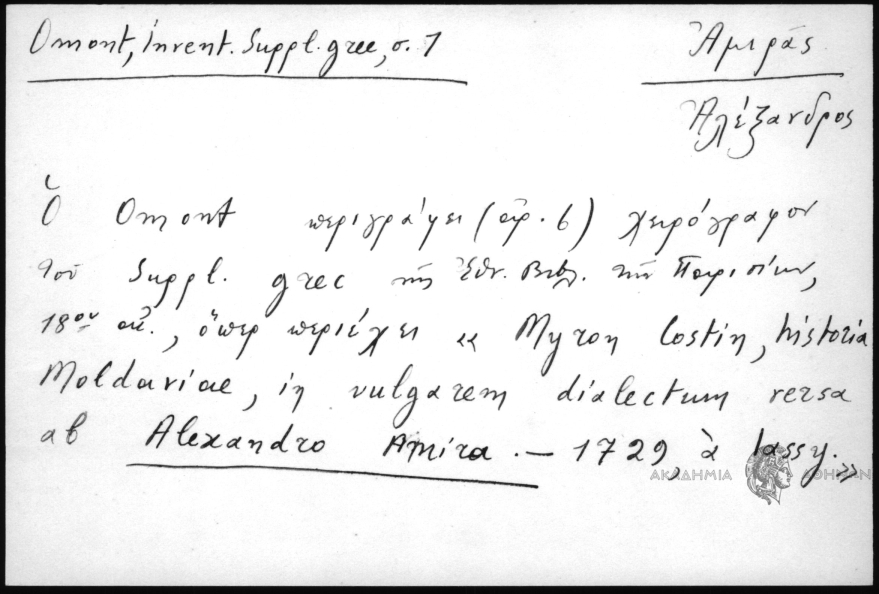 Omont, Invent. Suppl. grec, σ. 1
Ἀμιρᾶς
Ἀλέξανδρος
Ὁ Omont περιγράφει (ἀρ. 6) χειρόγραφον
τοῦ Suppl. grec τῆς Ἐθν. Βιβλ. τῶν Παρισίων,
18ου αἰ., ὅπερ περιέχει « Myron Costin, historia
Moldaviae, in vulgarem dialectum versa
ab Alexandro Amira. — 1729, à Iassy. »
ΑΚΑΔΗΜΙΑ ΑΘΗΝΩΝ